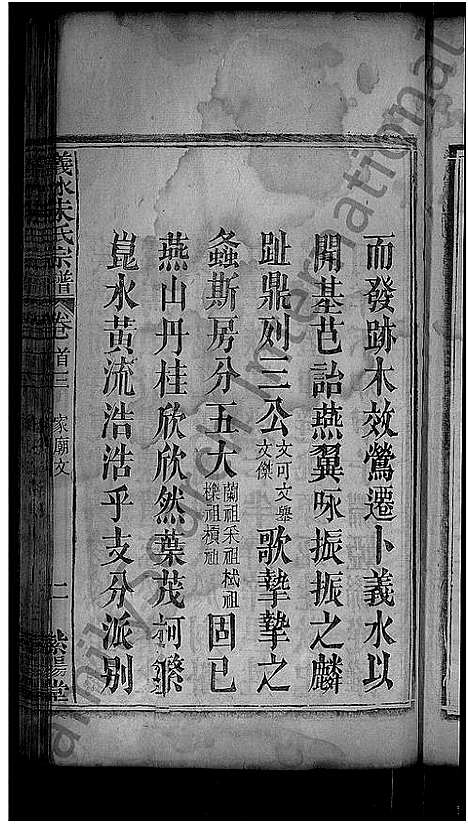 而發跡木效鶯遷卜義水以
開基芑詒燕翼咏振振之麟
趾鼎列三公文可文舉文傑歌摯摯之
螽斯房分五大蘭祖采祖棫祖檖祖積祖固已
燕山丹桂欣欣然葉茂柯繁
崑水黃流浩浩乎支分派別
義水朱氏宗譜 卷首三 家廟文 二 紫陽堂
FamilySearch International